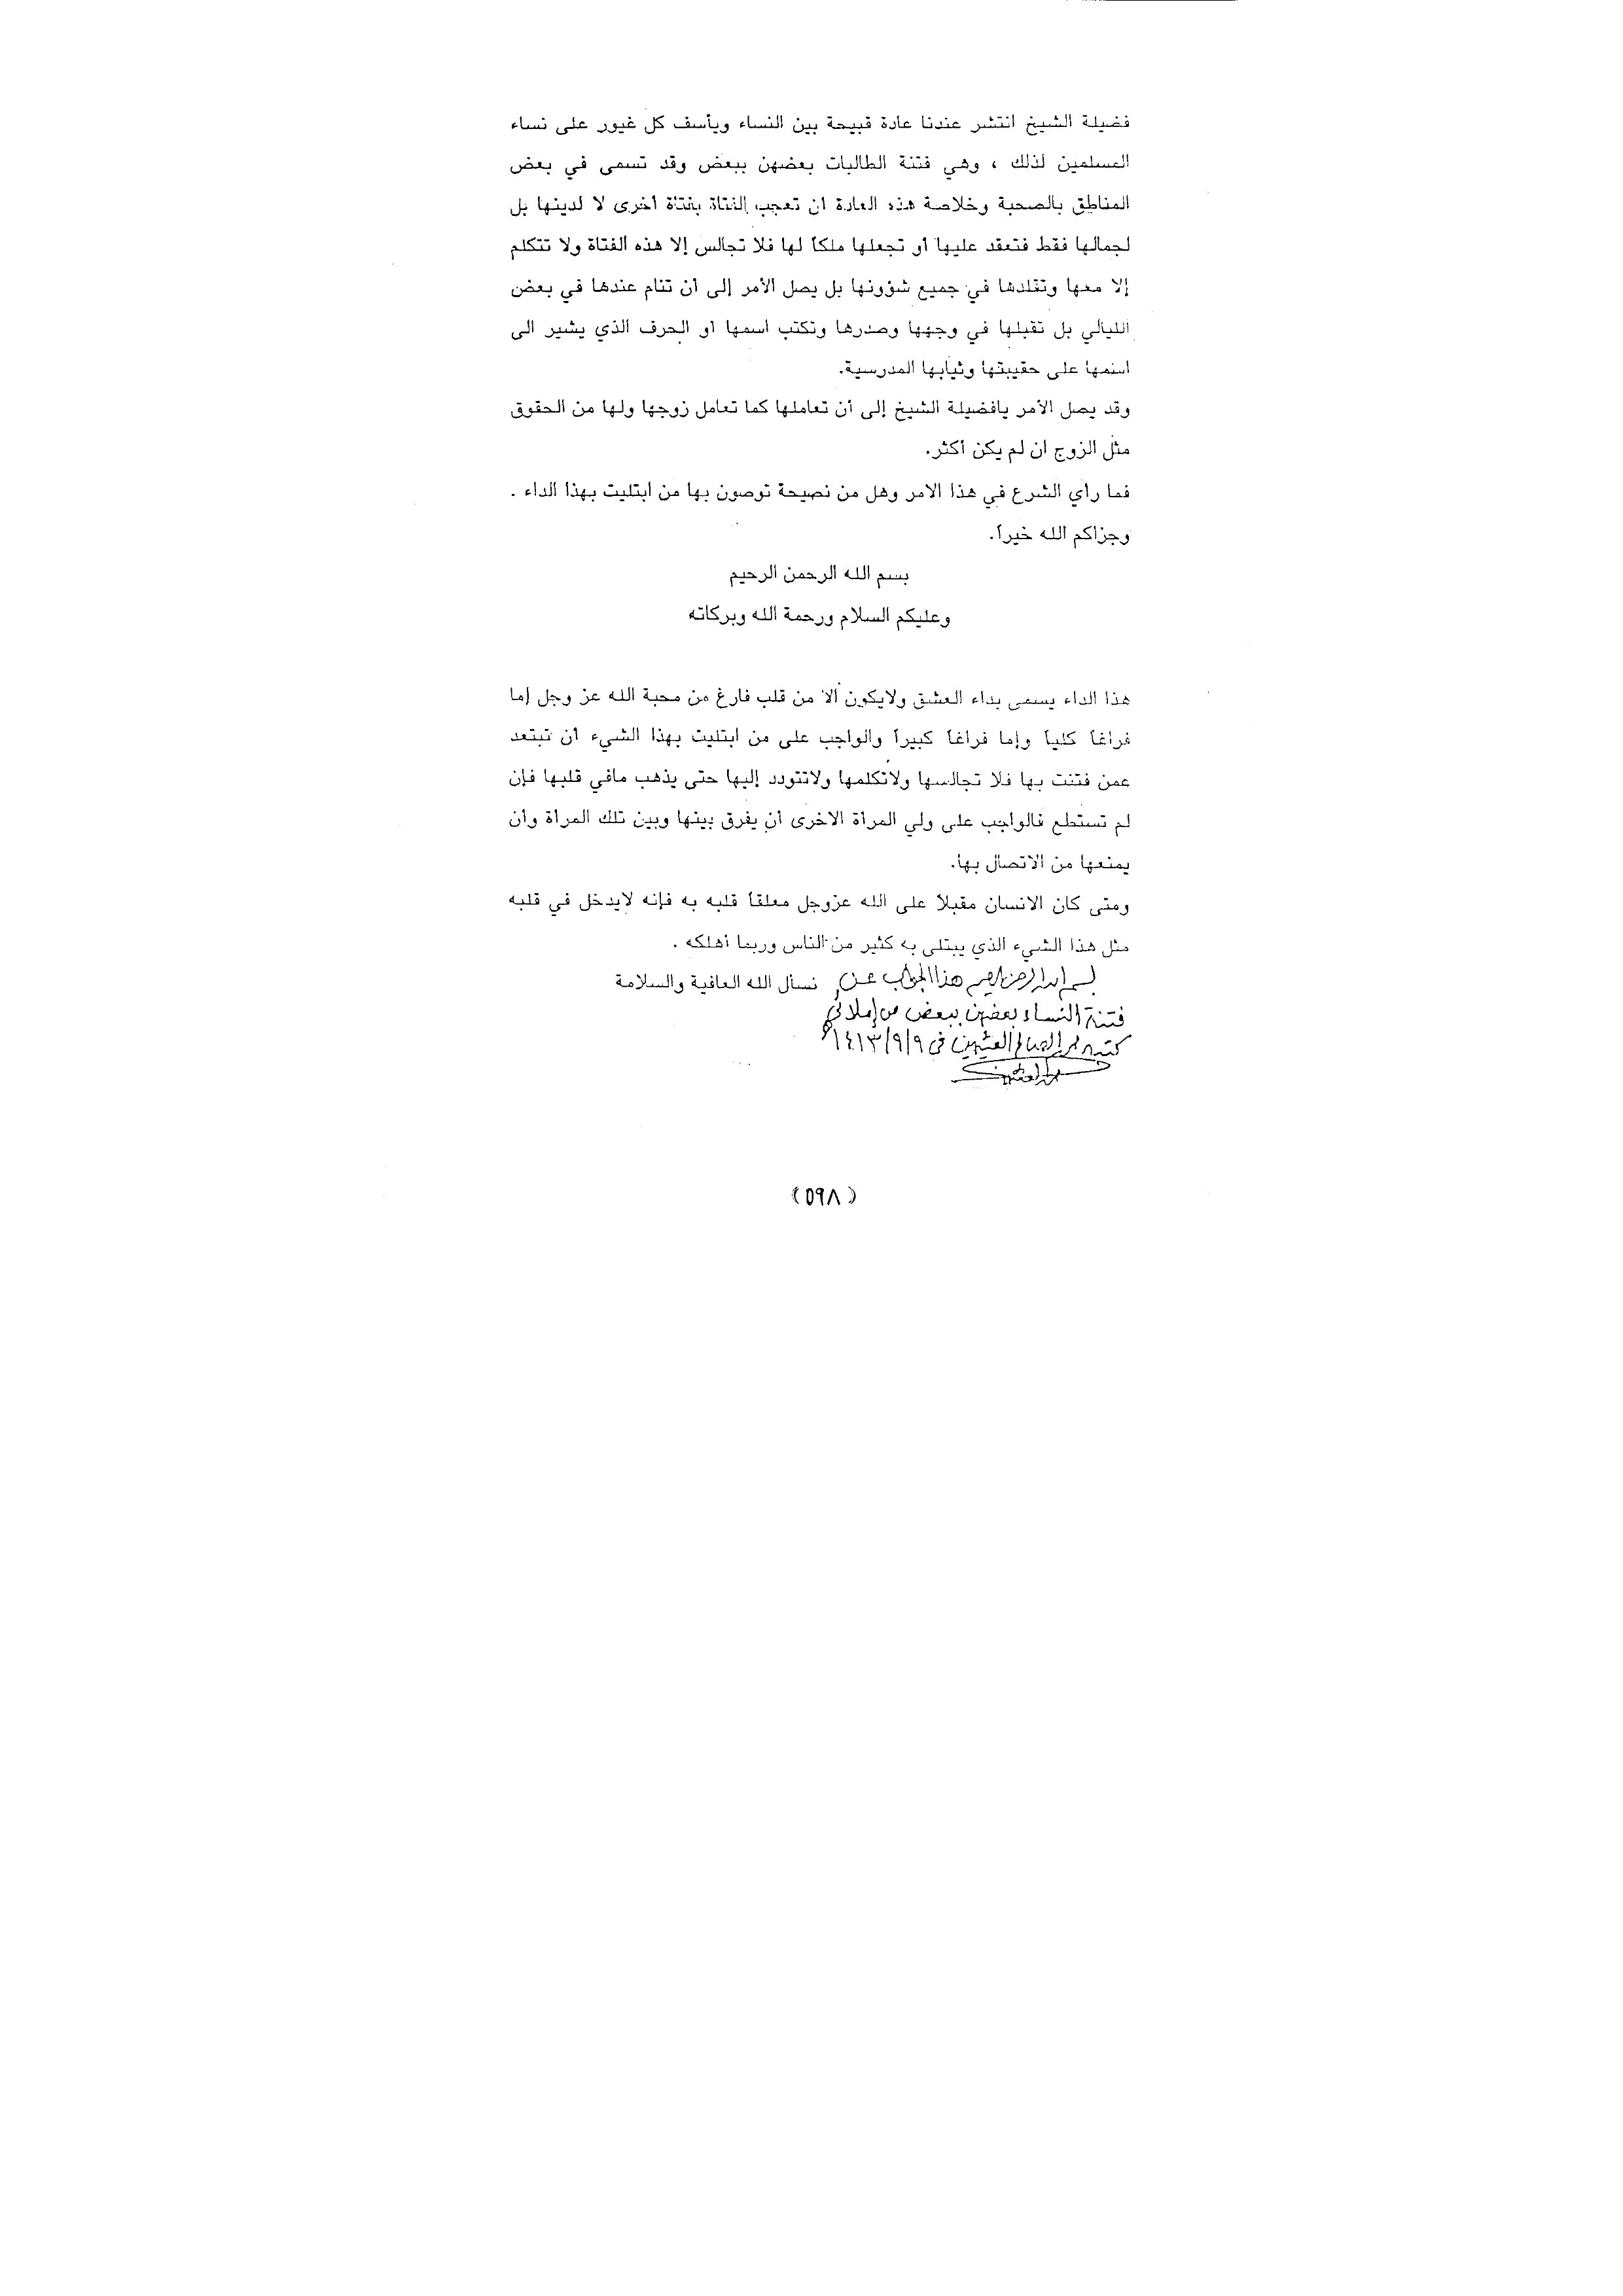 فضيلة الشيخ انتشر عندنا عادة قبيحة بين النساء ويأسف كل غيور على نساء
المسلمين لذلك ، وهي فتنة الطالبات بعضهن ببعض وقد تسمى في بعض
المناطق بالصحبة وخلاصة هذه العادة ان تعجب الفتاة بفتاة أخرى لا لدينها بل
لجمالها فقط فتعقد عليها أو تجعلها ملكاً لها فلا تجالس إلا هذه الفتاة ولا تتكلم
إلا معها وتقلدها في جميع شؤونها بل يصل الأمر إلى أن تنام عندها في بعض
الليالي بل تقبلها في وجهها وصدرها وتكتب اسمها أو الحرف الذي يشير الى
اسمها على حقيبتها وثيابها المدرسية.
وقد يصل الأمر يافضيلة الشيخ إلى أن تعاملها كما تعامل زوجها ولها من الحقوق
مثل الزوج ان لم يكن أكثر.
فما رأي الشرع في هذا الامر وهل من نصيحة توصون بها من ابتليت بهذا الداء .
وجزاكم الله خيراً.
بسم الله الرحمن الرحيم
وعليكم السلام ورحمة الله وبركاته
هذا الداء يسمى بداء العشق ولايكون ألا من قلب فارغ من محبة الله عز وجل إما
فراغاً كلياً وإما فراغاً كبيراً والواجب على من ابتليت بهذا الشيء أن تبتعد
عمن فتنت بها فلا تجالسها ولاتكلمها ولاتتودد إليها حتى يذهب مافي قلبها فإن
لم تستطع فالواجب على ولي المرأة الاخرى أن يفرق بينها وبين تلك المرأة وأن
يمنعها من الاتصال بها.
ومتى كان الانسان مقبلاً على الله عزوجل معلقاً قلبه به فإنه لايدخل في قلبه
مثل هذا الشيء الذي يبتلى به كثير من الناس وربما أهلكه .
نسأل الله العافية والسلامة
بسم الله الرحمن الرحيم هذا الجواب عن
فتنة النساء بعضهن ببعض من إملائي
كتبه محمد الصالح العثيمين في ١٤١٣/٩/٩هـ
(٥٩٨)